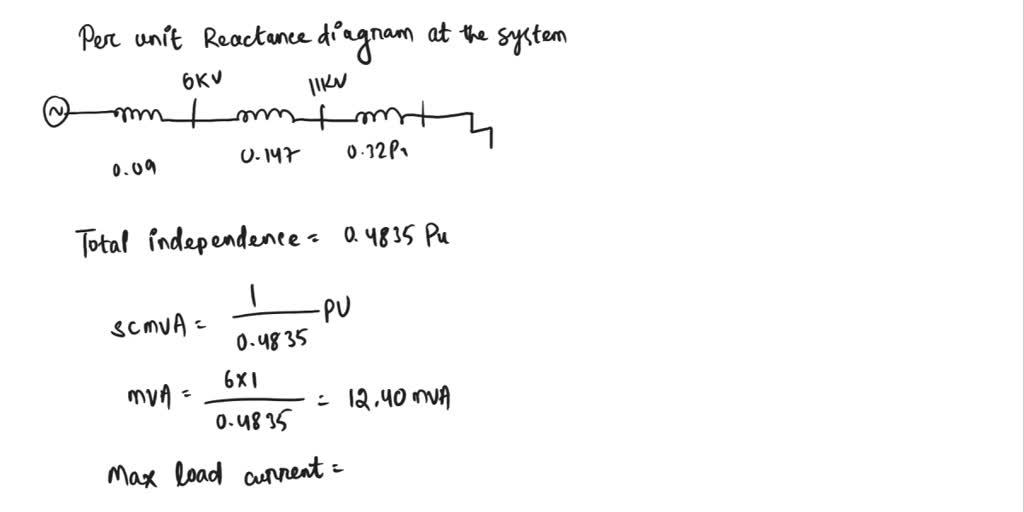 Per unit Reactance diagram at the system
6KV 11KV
~
0.09 0.147 0.32Pu
Total independence = 0.4835 Pu
SCMVA = 1 / 0.4835 PU
MVA = 6×1 / 0.4835 = 12.40 MVA
Max load current =